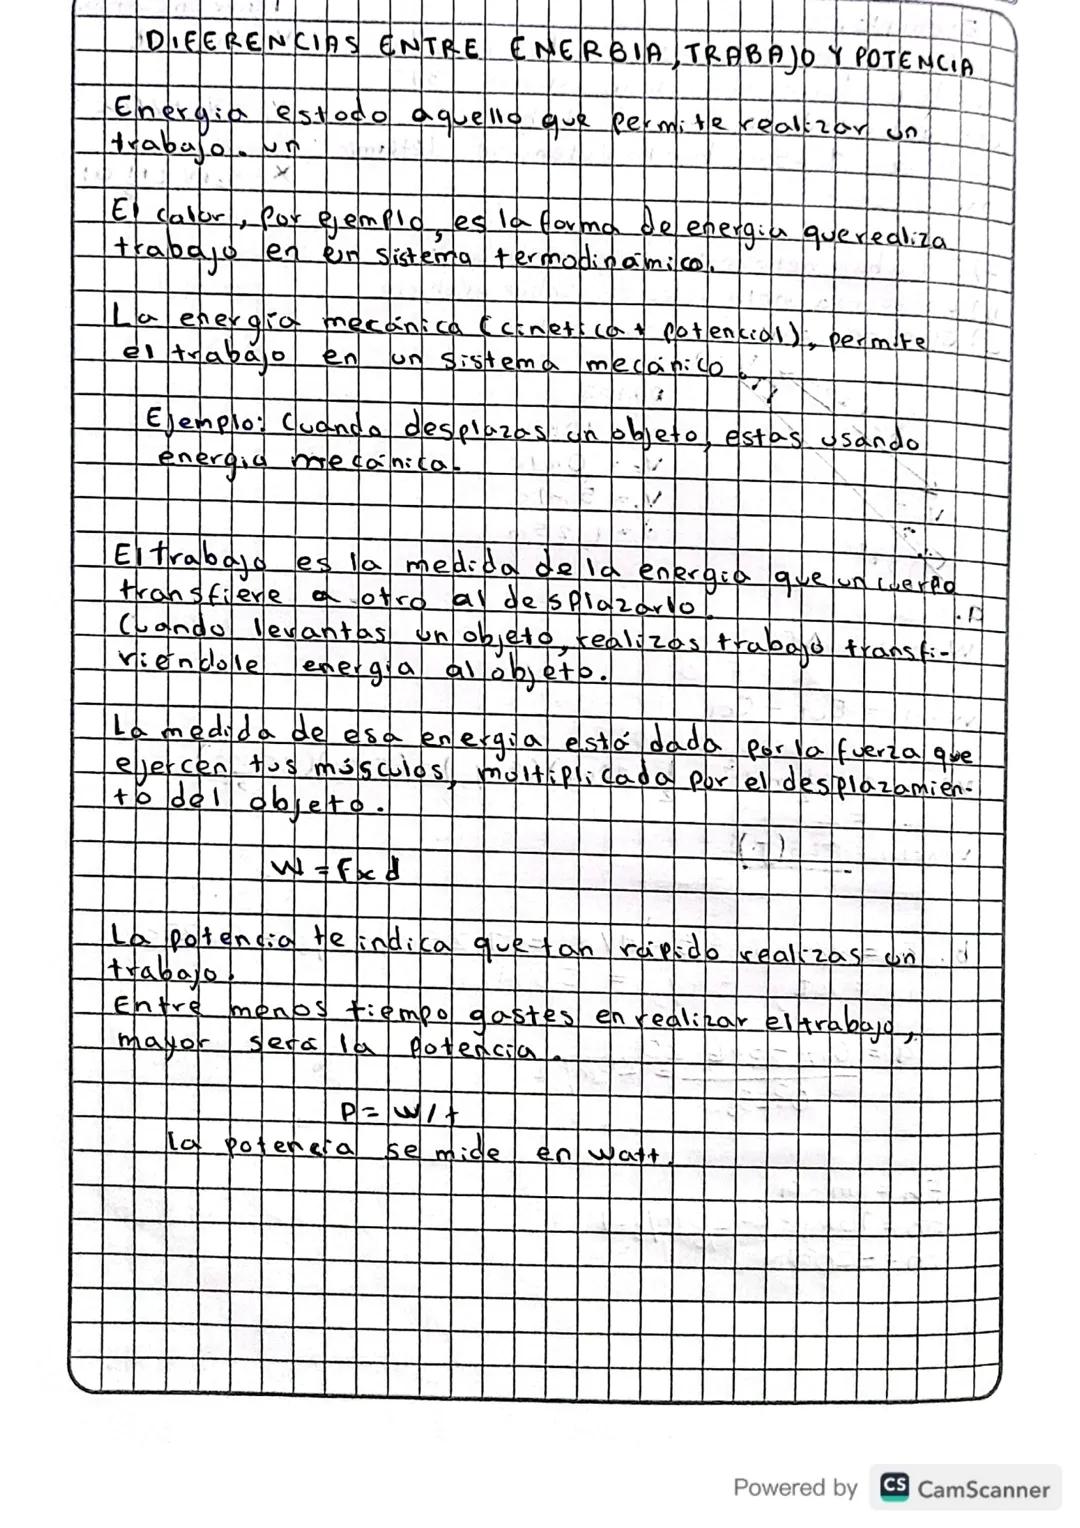 DIFERENCIAS ENTRE ENERGIA, TRABAJO Y POTENCIA
Energia es todo aquello que permite realizar un
trabajo. un
x
El calor, por ejemplo, es la forma de energia que realiza
trabajo en un sistema termodinámico.
La energia mecánica (cinetica + potencial), permite
el trabajo en un sistema mecánico.
Ejemplo: Cuando desplazas un objeto, estas usando
energia mecánica.
El trabajo es la medida de la energia que un cuerpo
transfiere a otro al desplazarlo.
Cuando levantas un objeto, realizas trabajo transfi-
riéndole energia al objeto.
La medida de esa energia está dada por la fuerza que
ejercen tus músculos, multiplicada por el desplazamien-
to del objeto.
W = F x d
La potencia te indica que tan rápido realizas un
trabajo.
Entre menos tiempo gastes en realizar el trabajo,
mayor será la potencia.
P = W/t
la potencia se mide en watt.
Powered by CS CamScanner